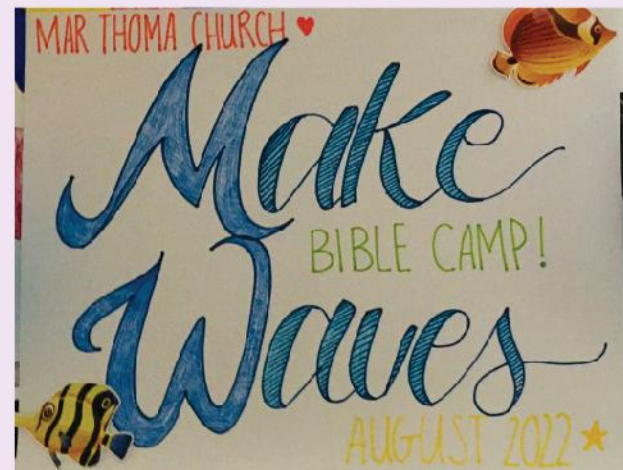 MAR THOMA CHURCH ♥
Make
BIBLE CAMP!
Waves
AUGUST 2022 ★